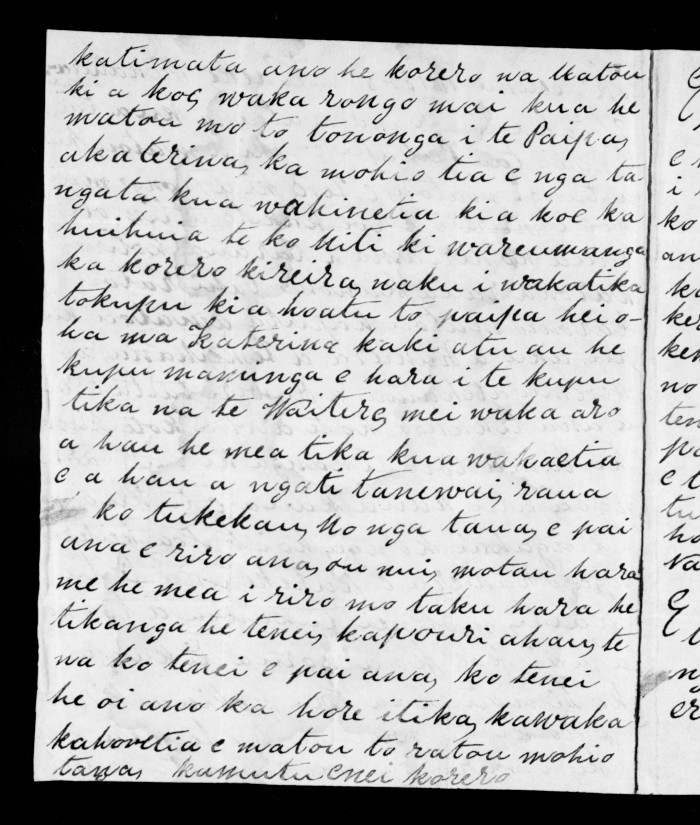 katimata ano he korero na Matou
ki a koe, waka rongo mai kua he
matou mo to tononga i te Paipa,
akaterina, ka mohio tia e nga ta
ngata kua wahinetia ki a koe ka
huihuia te ko Miti ki wareumanga
ka korero kireira, naku i wakatika
tokupu ki a hoatu to paipa hei o-
ha ma Katerina kaki atu au he
kupu manunga e hara i te kupu
tika na te Waitere, mei waka aro
a hau he mea tika kua wakaetia
e, a hau a ngati tanewai, raua
ko tukekau, No nga tana, e pai
ana e riro ana, ou mui, motau hara
me he mea i riro mo taku hara he
tikanga he tenei, kapouri ahau, te
na ko tenei e pai ana, ko tenei
he oi ano ka hore itika, kawaka
kahoretia e matou to ratou mohio
tana, kamutu enei korero
G
e
i
ko
an
ka
ke
ken
no
ten
pa
e
tu
ha
na
E
er